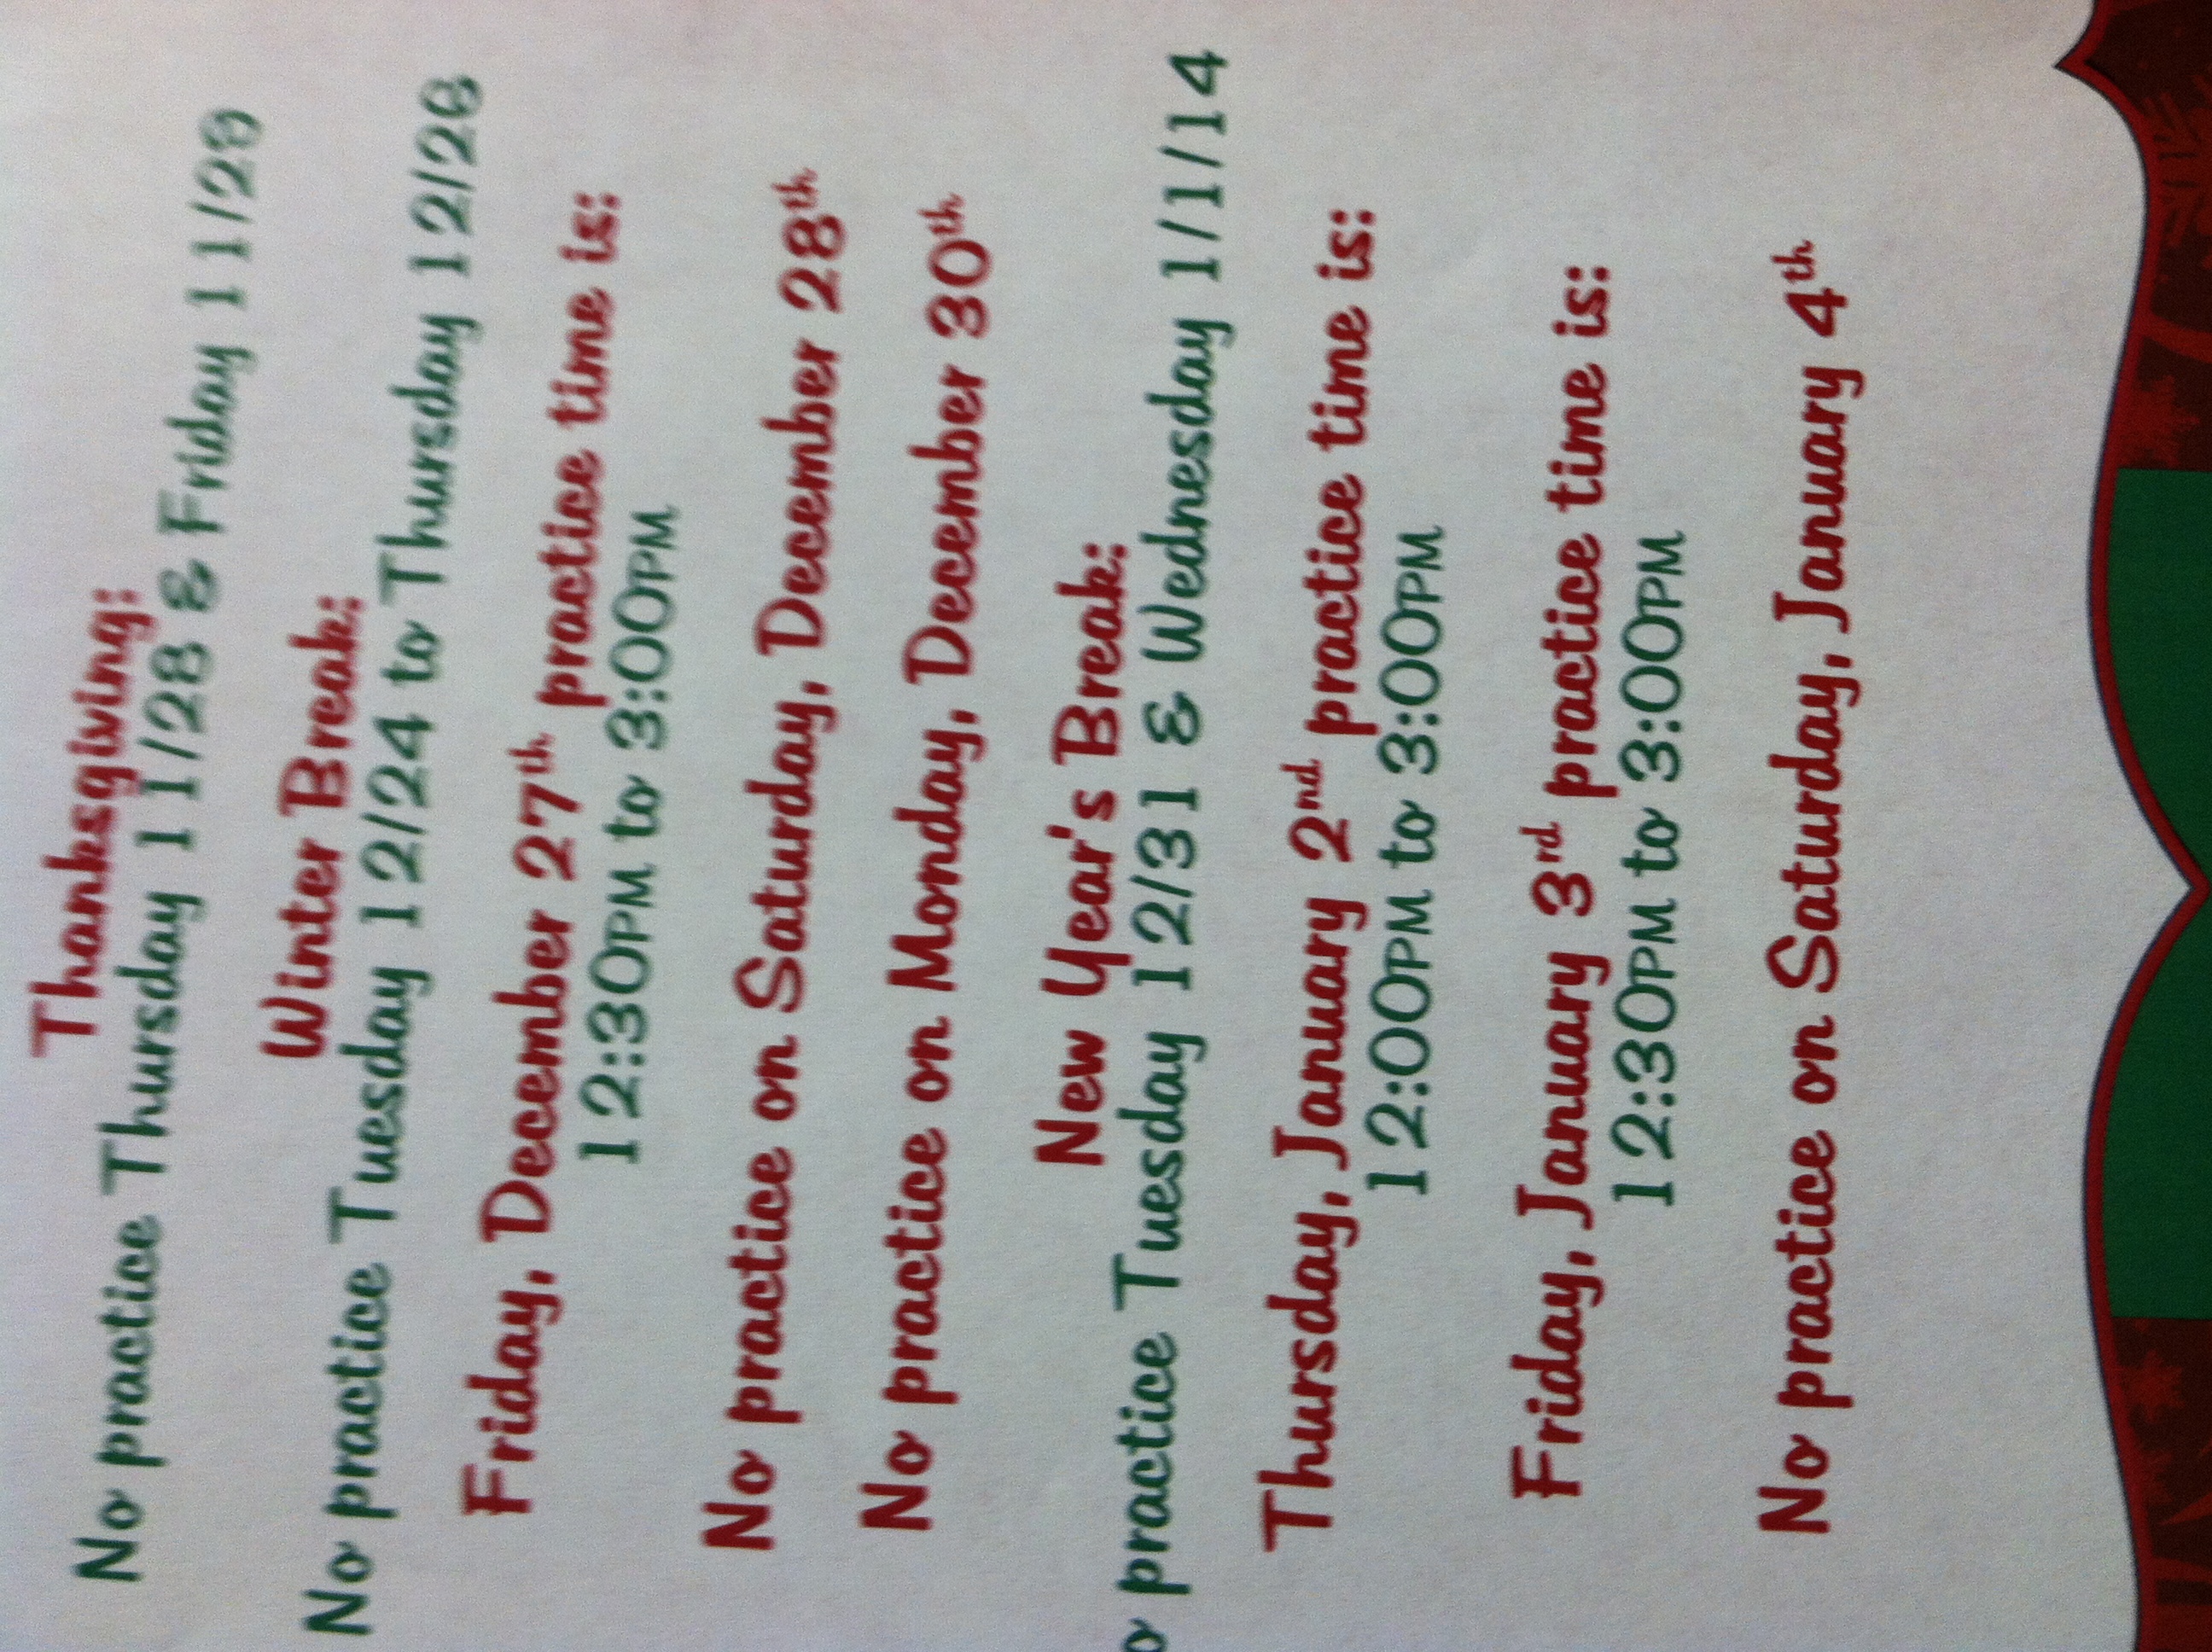 Thanksgiving:
No practice Thursday 11/28 & Friday 11/29
Winter Break:
No practice Tuesday 12/24 to Thursday 12/26
Friday, December 27th practice time is:
12:30PM to 3:00PM
No practice on Saturday, December 28th
No practice on Monday, December 30th
New Year's Break:
o practice Tuesday 12/31 & Wednesday 1/1/14
Thursday, January 2nd practice time is:
12:00PM to 3:00PM
Friday, January 3rd practice time is:
12:30PM to 3:00PM
No practice on Saturday, January 4th